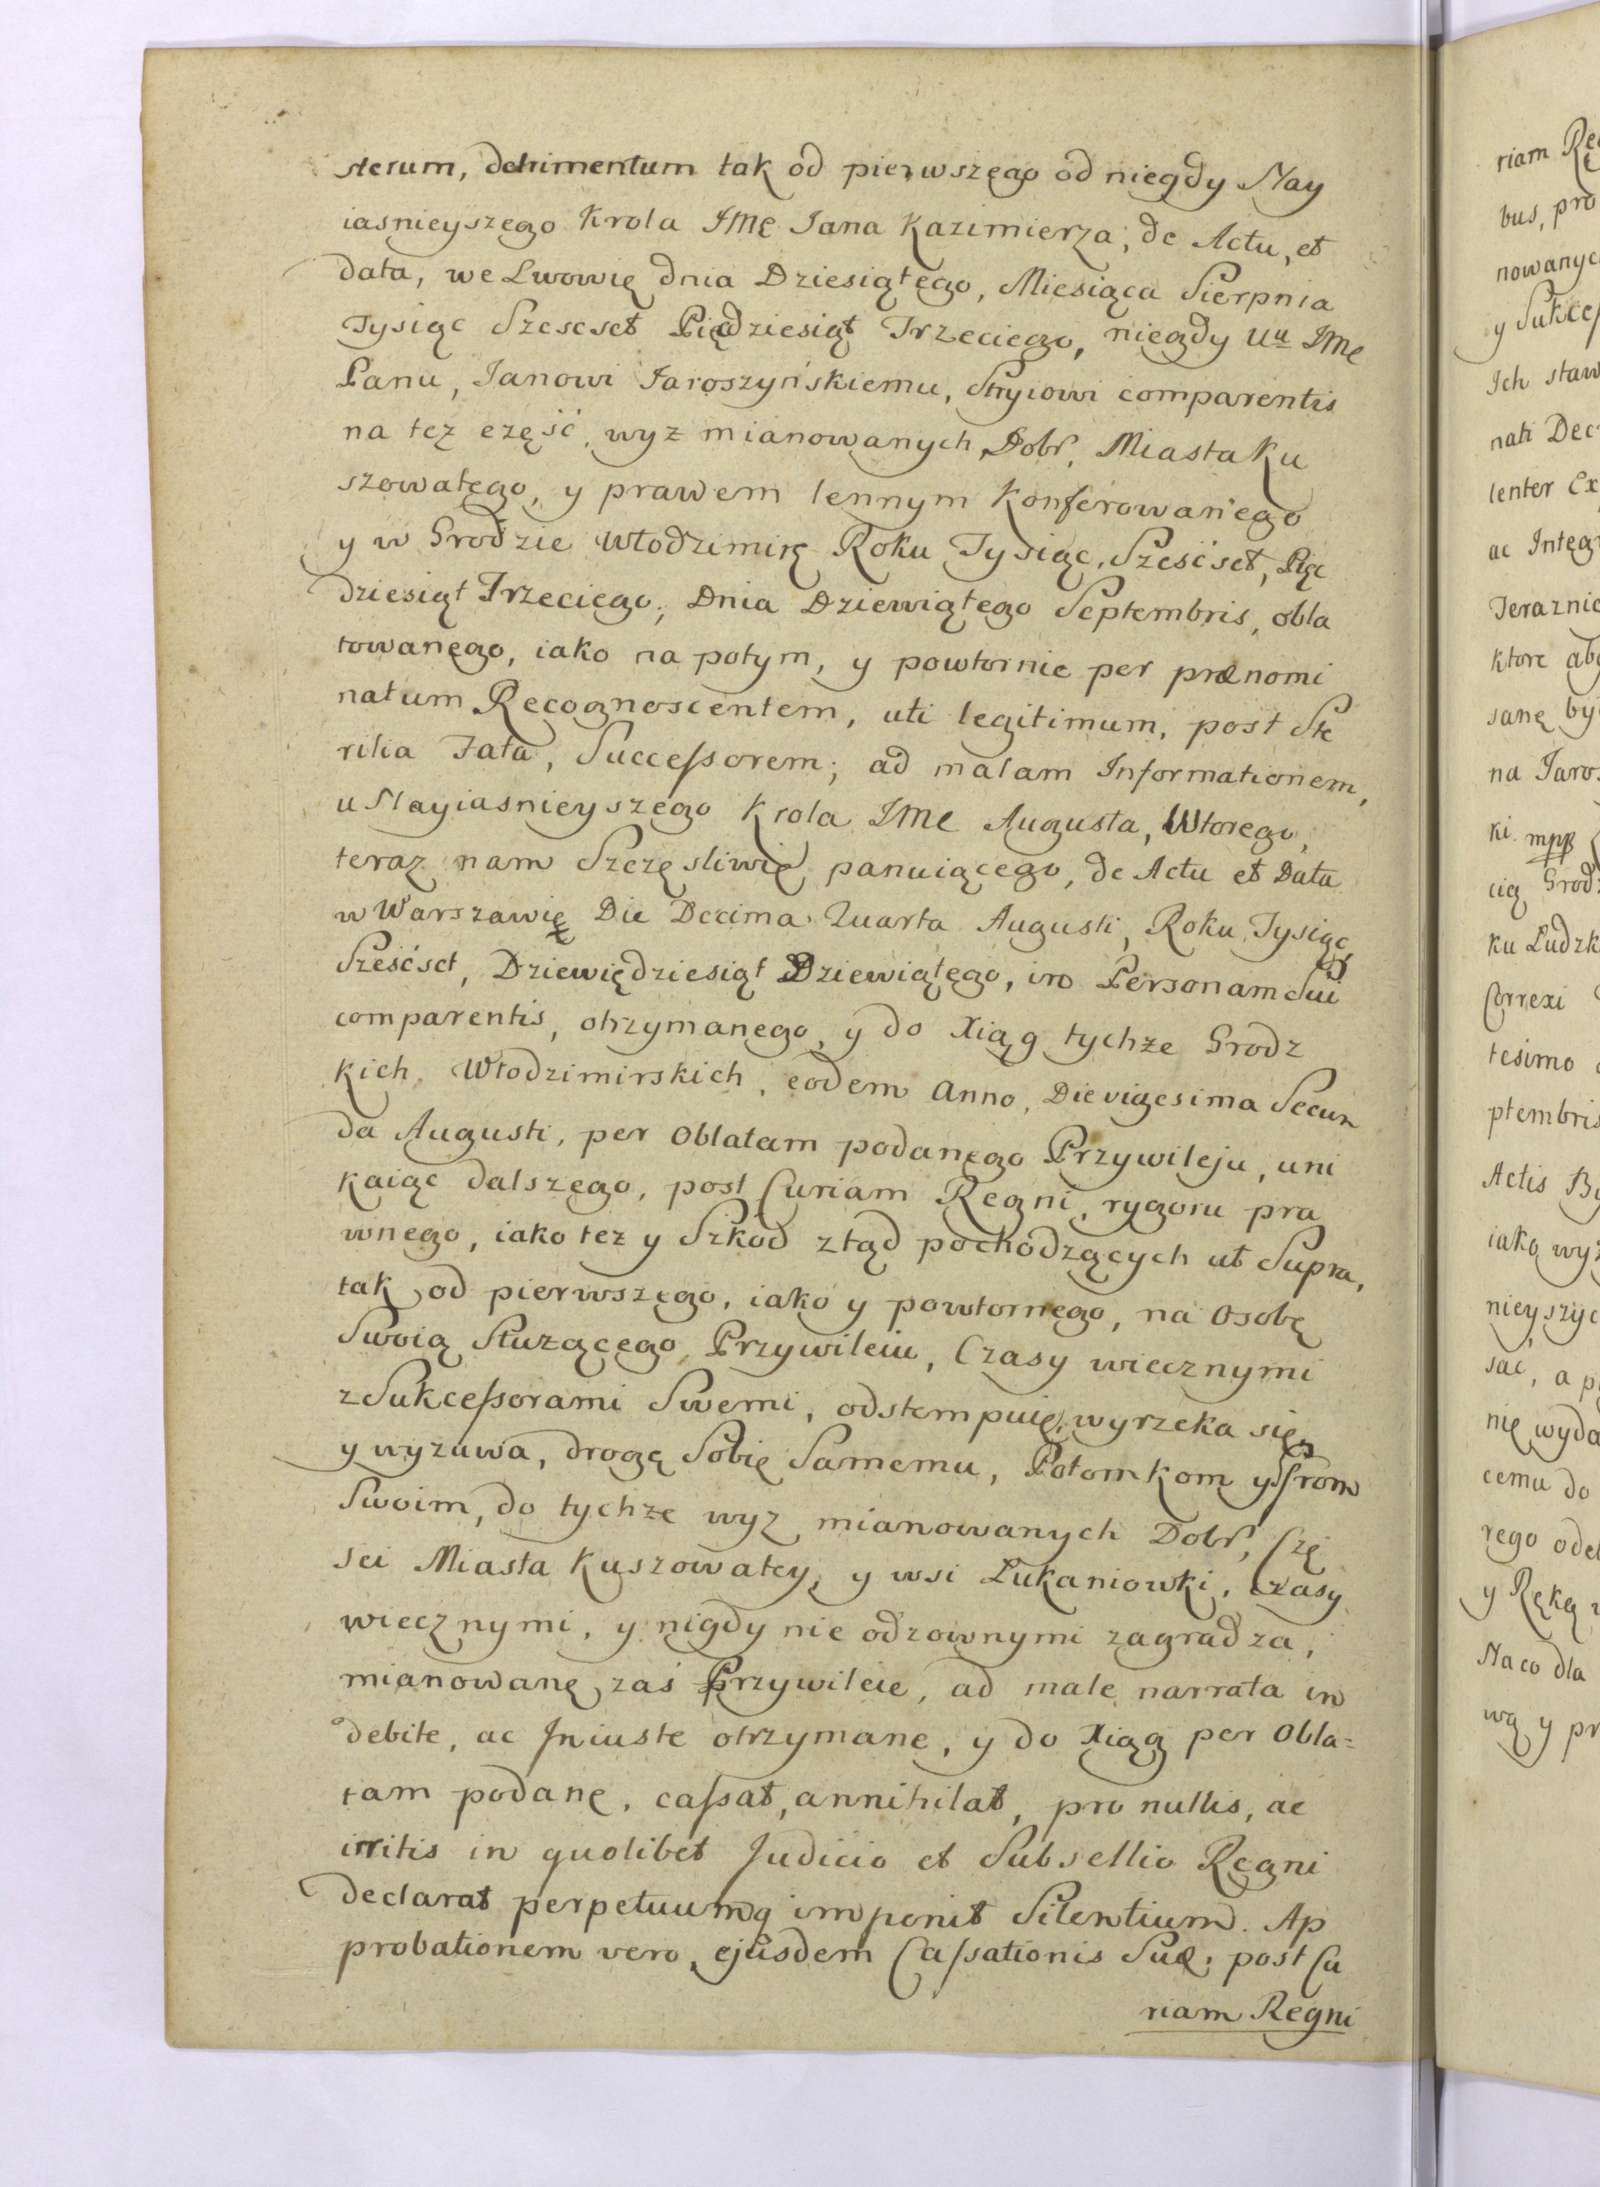 sterum, detrimentum tak od pierwszego od niegdy Nay
iasnieyszego Krola JMę Jana Kazimierza, de Actu, et
data, we Lwowię dnia Dziesiątego, Miesiąca Sierpnia
Tysiąc Szescset Piędziesiąt Trzeciego, niegdy Uu JMę
Panu, Janowi Jaroszyńskiemu, Stryiowi comparentis
na tęz częśc, wyz mianowanych Dobr, Miasta Ku
szowatego, y prawem lennym Konferowanego
y w Grodzie Włodzimirę Roku Tysiąc, Sześćset, Pięc
dziesiąt Trzeciego, Dnia Dziewiątego Septembris, obla
towanego, iako na potym, y powtornie per prænomi
natum Recognoscentem, uti legitimum, post Ste
rilia Fata, Successorem; ad malam Informationem,
u Nayiasnieyszego Krola JMe Augusta, Wtorego,
teraz nam Szczęsliwię panuiącego, de Actu et Data
w Warszawię Die Decima Quarta Augusti, Roku Tysiąc
Sześćset, Dziewiędziesiąt Dziewiątego, in Personam Sui
comparentis, otrzymanego, y do Xiąg tychże Grodz
kich Włodzimirskich, eodem Anno, Die vigesima Secun
da Augusti, per Oblatam podanego Przywileju, uni
kaiąc dalszego, post Curiam Regni, rygoru pra
wnego, iako tez y Szkod ztąd pochodzących ut Supra,
tak od pierwszego, iako y powtornego, na Osobę
Swoią Służącego Przywileiu, Czasy wiecznymi
z Sukcessorami Swemi, odstempuię, wyrzeka się,
y wyzuwa, drogę Sobię Samemu, Potomkom y
Swoim, do tychże wyz mianowanych Dobr, Czę
sci Miasta Kuszowatey, y wsi Łukaniowki, czasy
wiecznymi, y nigdy nie odzownymi zagradza,
mianowanę zaś Przywileie, ad male narrata in
debite, ac Iniuste otrzymane, y do Xiąg per Obla=
tam podanę, cassat, annihilat, pro nullis, ac
irritis in quolibet Judicio et Subsellio Regni
declarat perpetuumq imponit Silentium. Ap
probationem vero, ejusdem Cassationis Suæ, post Cu
riam Regni